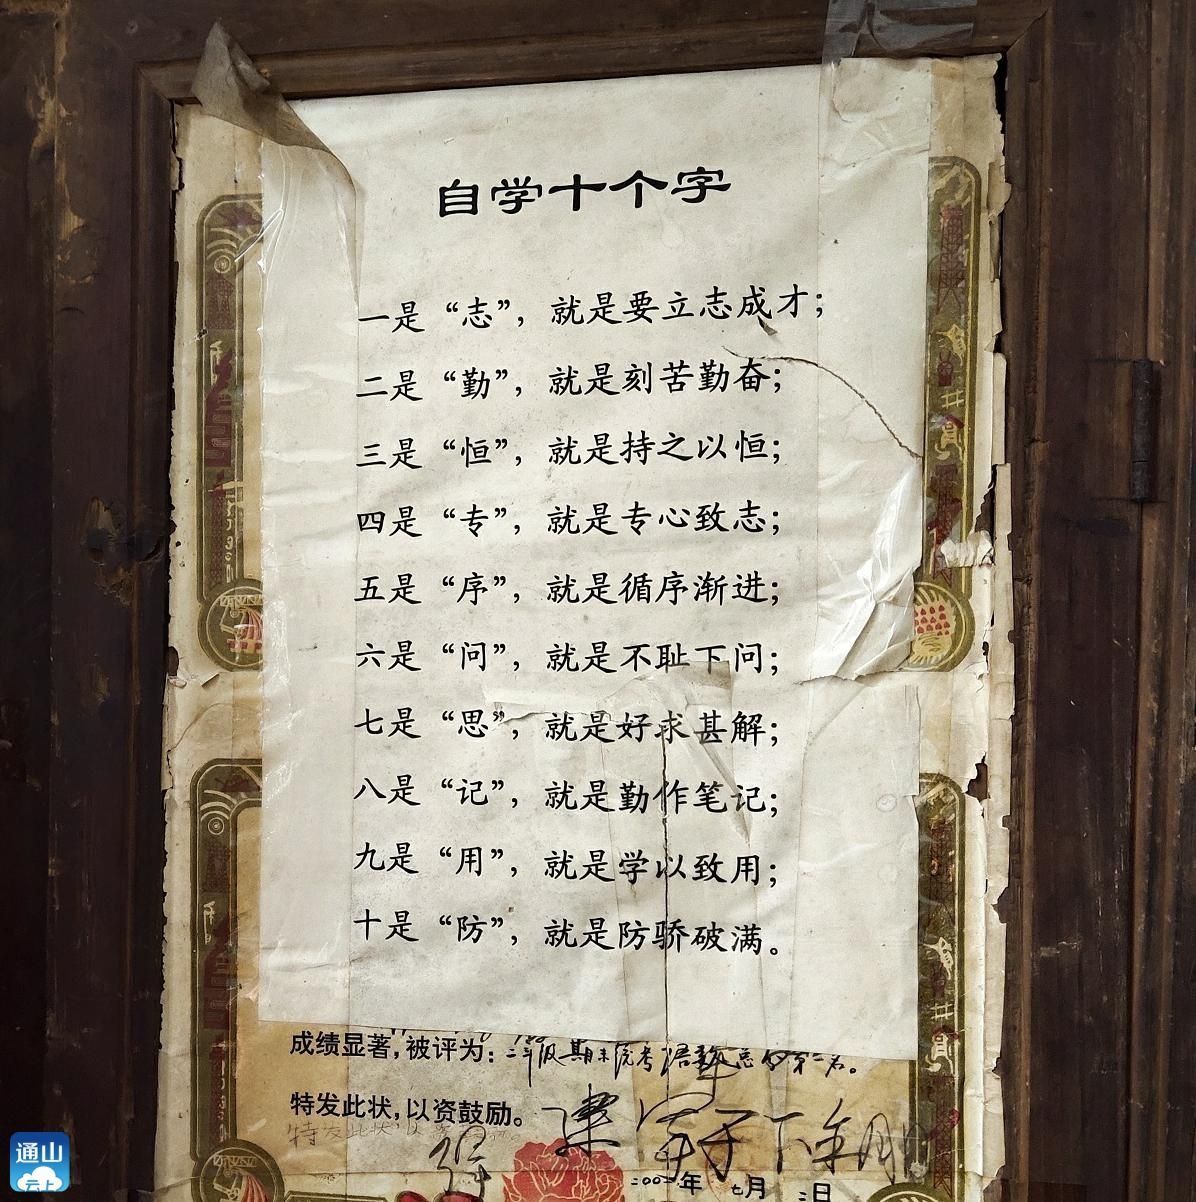 自学十个字
一是“志”，就是要立志成才；
二是“勤”，就是刻苦勤奋；
三是“恒”，就是持之以恒；
四是“专”，就是专心致志；
五是“序”，就是循序渐进；
六是“问”，就是不耻下问；
七是“思”，就是好求甚解；
八是“记”，就是勤作笔记；
九是“用”，就是学以致用；
十是“防”，就是防骄破满。
成绩显著，被评为：二年级期末统考语数总分第二名。
特发此状，以资鼓励。
特发此状 以
二00二年 七月 二日
通山
云上